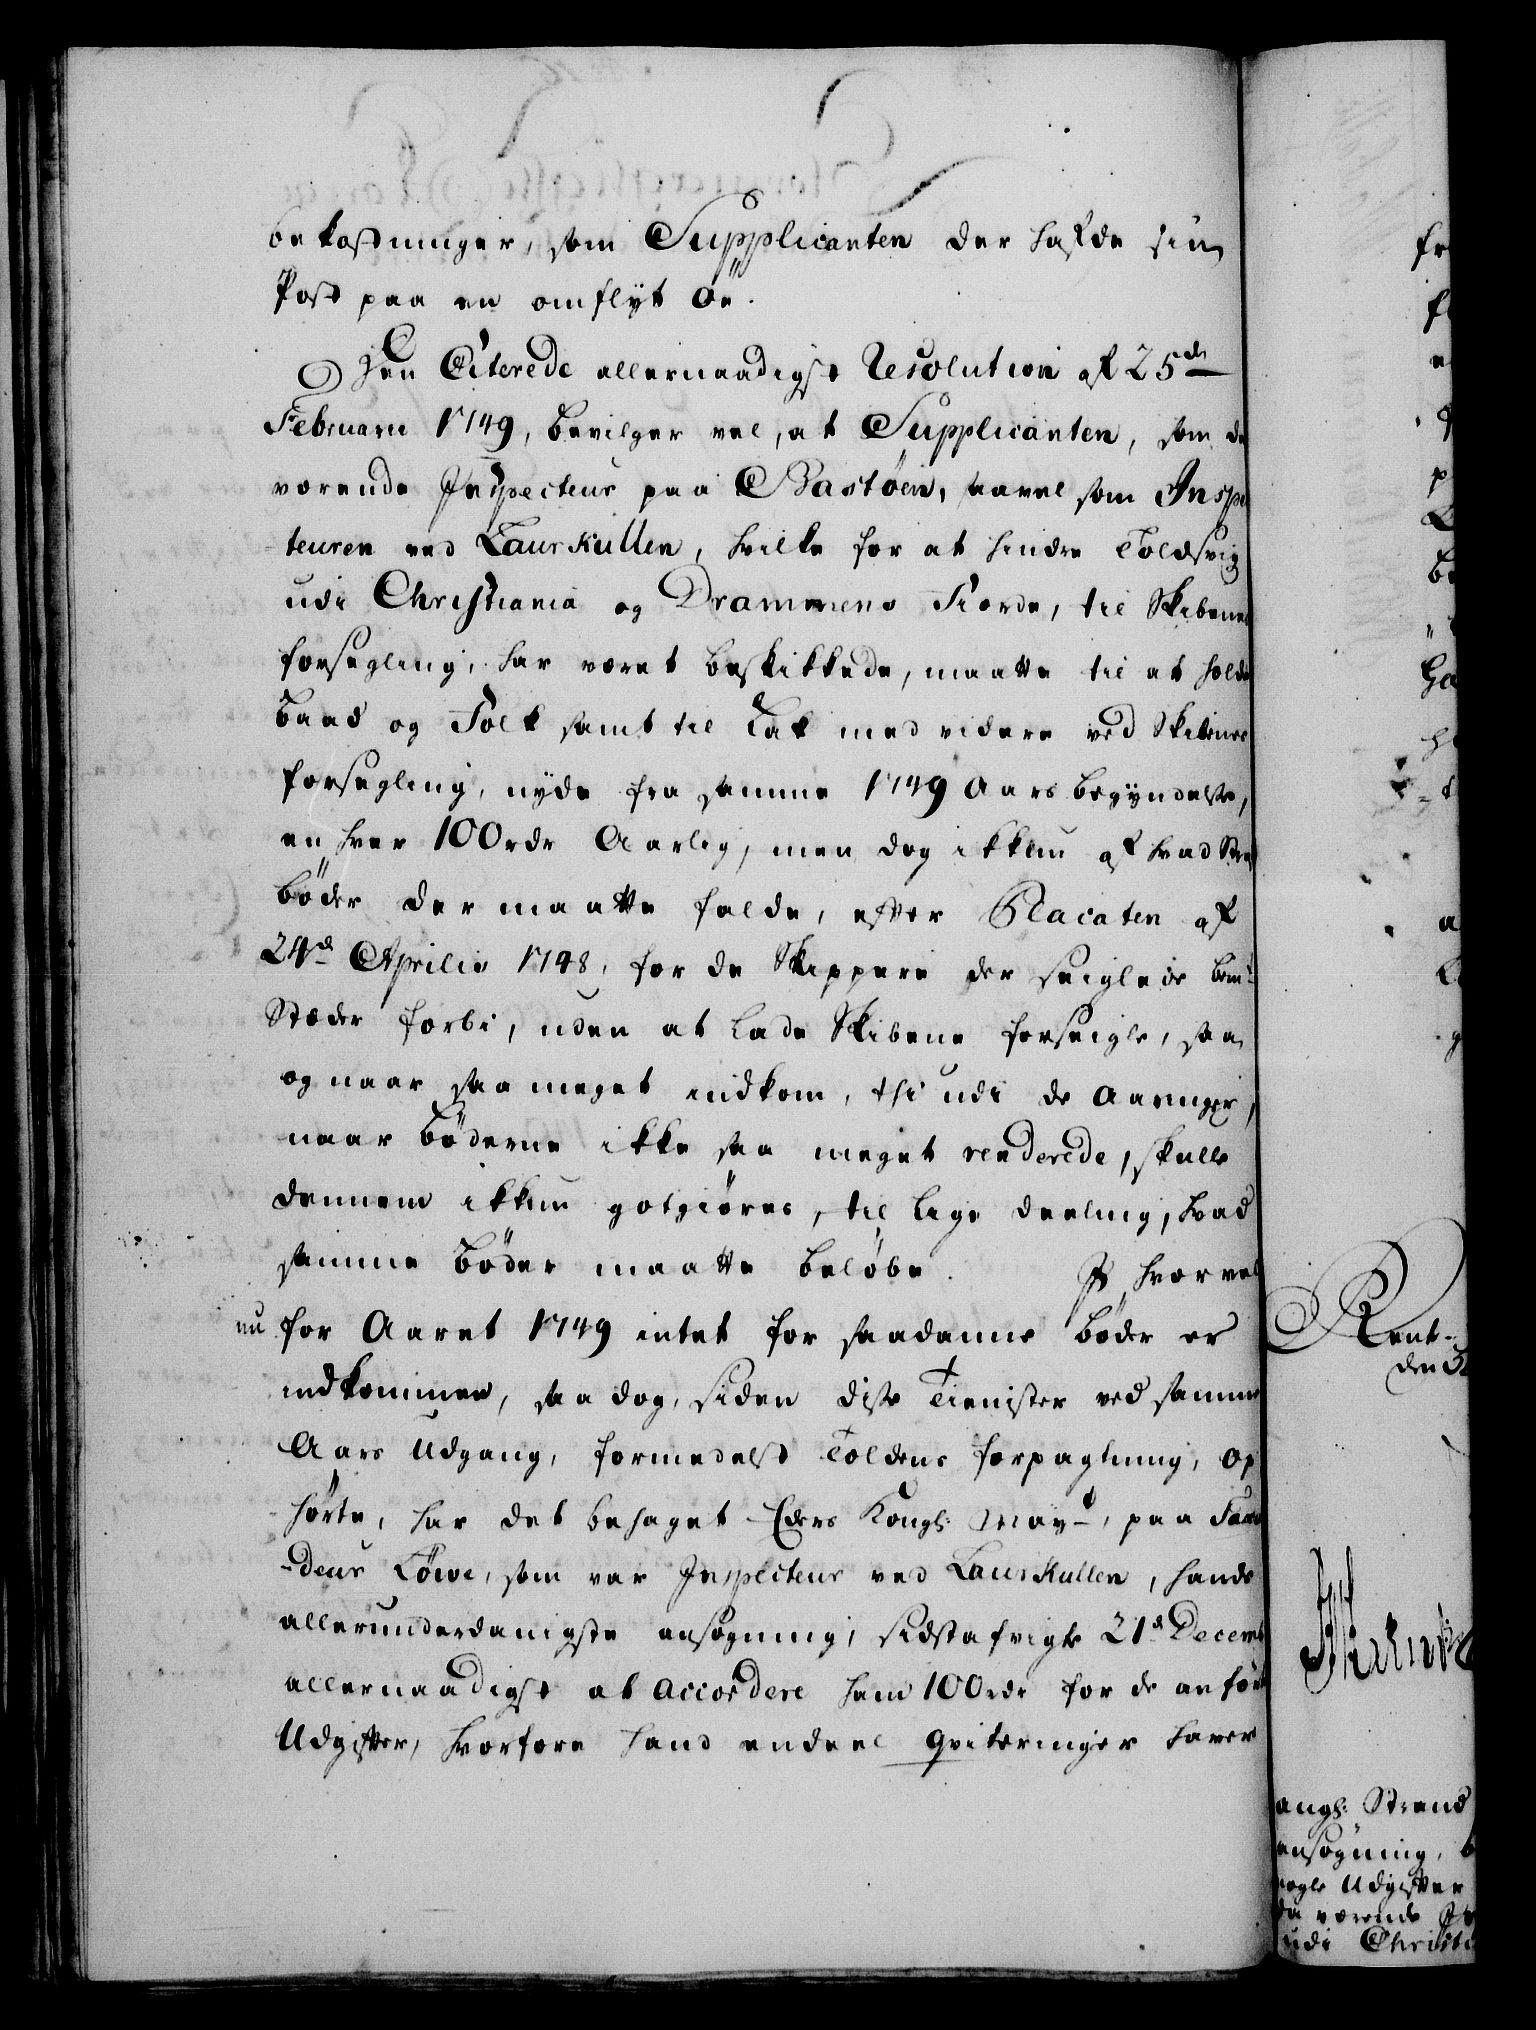 bekostninger, som Supplicanten der hafde sin
Post paa en omflyt Öe.
Den Citerede allernaadigst Resolution af 25de
Februarii 1749, bevilger vel, at Supplicanten, som da
værende Inspecteur paa Bastöen, saavel som Inspec
teuren ved Laurkullen, hvilke for at hindre Toldsvig
udi Christiania og Drammens Fiorde, til Skibenes
forsegling, har været beskikkede, maatte til at holde
Baad og Folk samt til Lak med videre ved Skibenes
forsegling, nyde fra samme 1749 Aars begyndelse,
en hver 100 rdr Aarlig, men dog ikkun af hvad Straf
böder der maatte falde, efter Placaten af
24de Aprilis 1748, for de Skippere der seiglede bem:te
Stæder forbi, uden at lade Skibene forseigle, saa
og naar saa meget indkom, thi udi de Aaringer,
naar Böderne ikke saa meget renderede, skulle
dennem ikkun gotgiöres, til lige deeling, hvad
samme Böder maatte belöbe. I hvor vel
nu for Aaret 1749 intet for saadanne Böder er
indkommen, saa dog, siden disse Tienister ved samme
Aars Udgang, formedelst Toldens forpagtning, op
hörte, har det behaget Eders Kongl: May:t, paa
-deur Löwe, som var Inspecteur ved Laurkullen, hands
allerunderdanigste ansögning, sidstafvigte 21de Decemb
allernaadigst at accordere ham 100 rdr for de anförte
Udgifter, hvorfore hand endeel qviteringer haver
Rent-
den 3
angl: Strand
ansögning,
nogle Udgifter
da værende
udi Christi